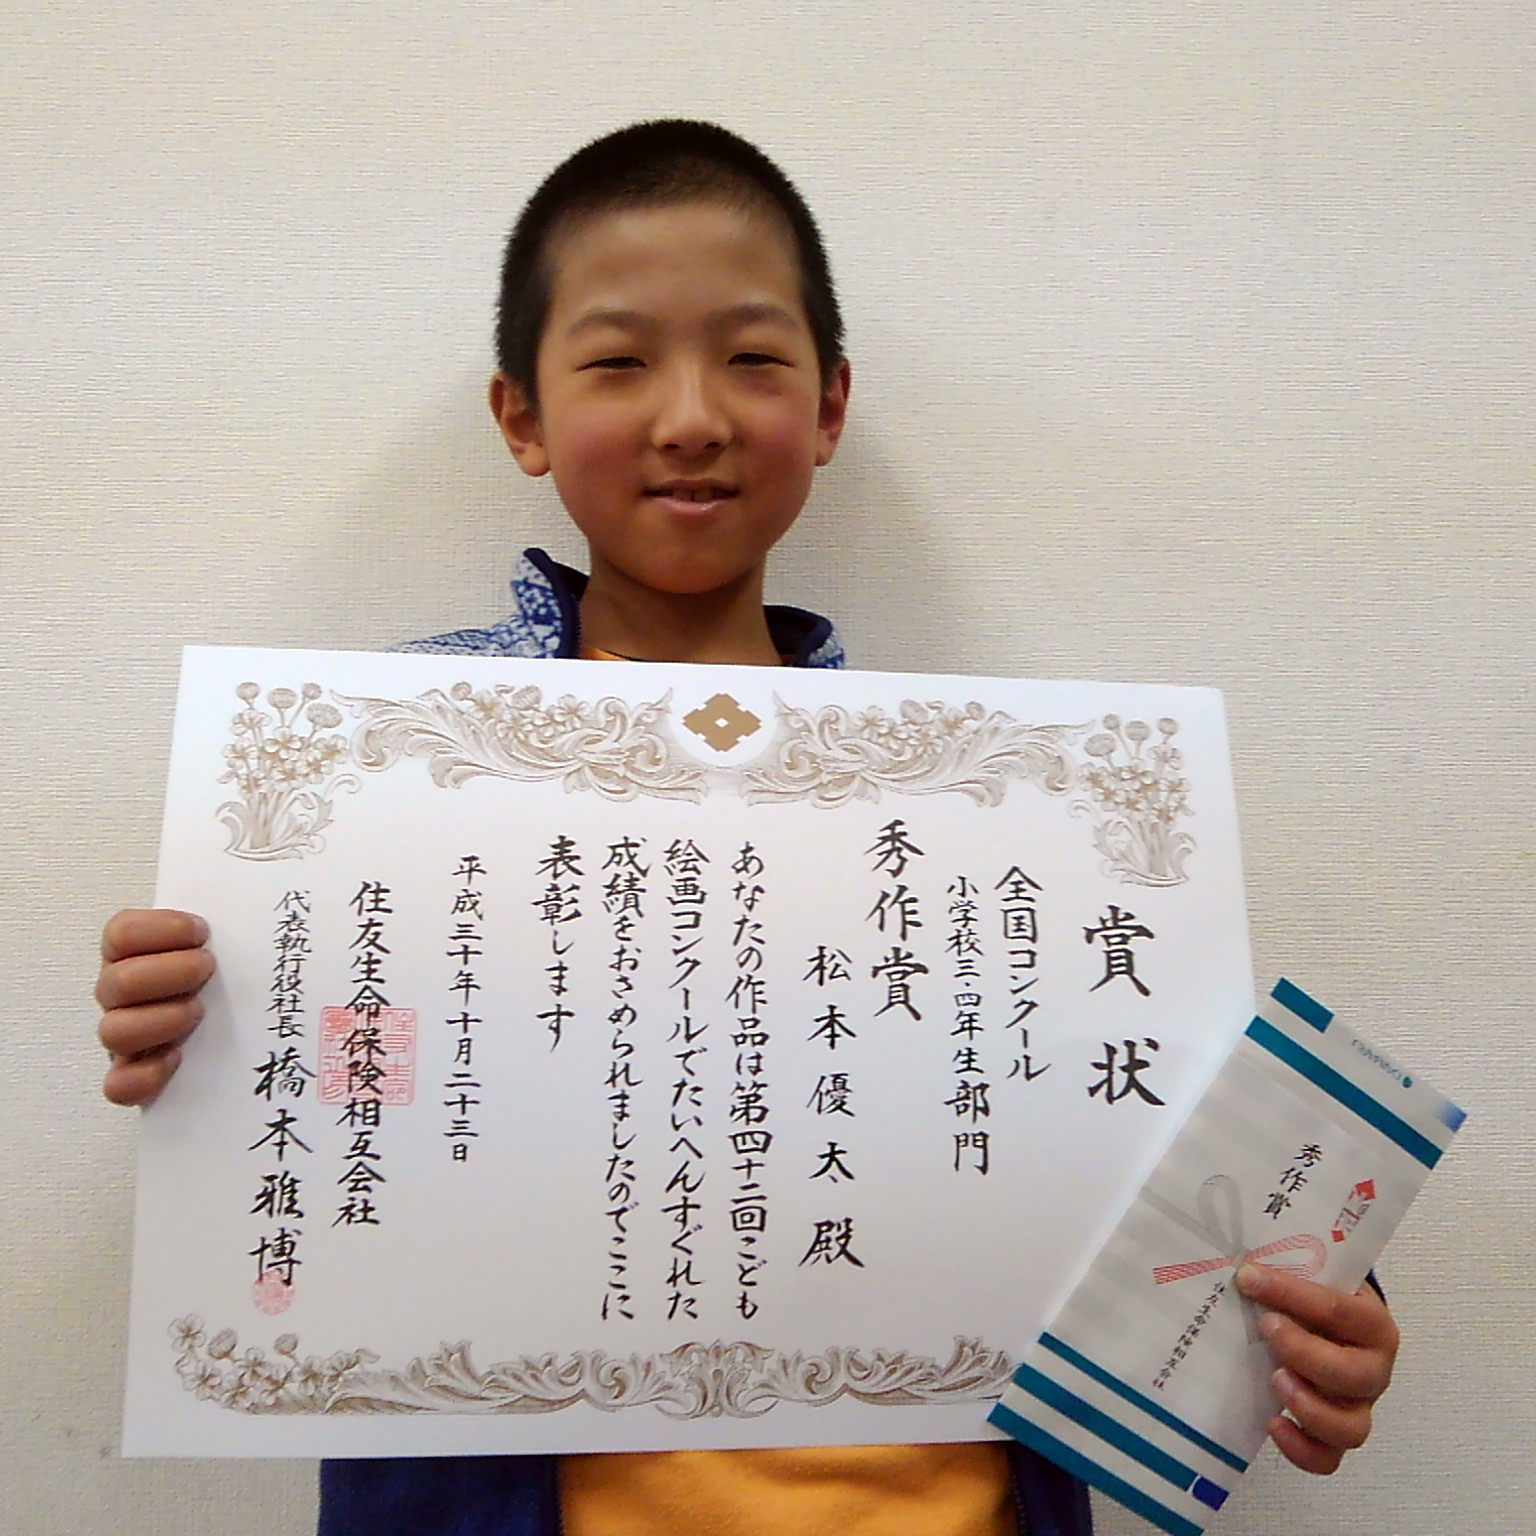 賞状
全国コンクール
小学校三・四年生部門
秀作賞
松本優太殿
あなたの作品は第四十二回こども
絵画コンクールでたいへんすぐれた
成績をおさめられましたのでここに
表彰します
平成三十年十月二十三日
住友生命保険相互会社
代表執行役社長 橋本雅博
秀作賞
住友生命保険相互会社